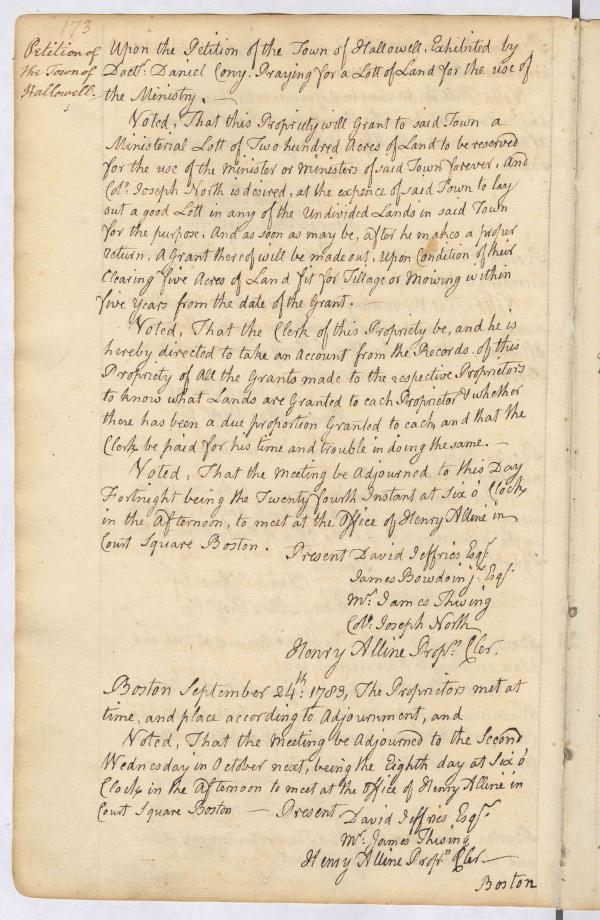 173
Petition of
the Town of
Hallowell.
Upon the Petition of the Town of Hallowell, Exhibited by
Doctr. Daniel Cony. Praying for a Lott of Land for the use of
the Ministry. —
Voted, That this Propriety will Grant to said Town a
Ministerial Lott of Two hundred Acres of Land to be reserved
for the use of the Minister or Ministers of said Town forever, And
Colo. Joseph North is desired, at the expence of said Town to lay
out a good Lott in any of the Undivided Lands in said Town
for the purpose. And as soon as may be, after he makes a proper
return, A Grant thereof will be made out, Upon Condition of their
Clearing five Acres of Land fit for Tillage or Mowing within
five Years from the date of the Grant.
Voted, That the Clerk of this Propriety be, and he is
hereby directed to take an Account from the Records of this
Propriety of All the Grants made to the respective Proprietors
to know what Lands are Granted to each Proprietor & whether
there has been a due proportion Granted to each, and that the
Clerk be paid for his time and trouble in doing the same. —
Voted, That the Meeting be Adjourned to this Day
Fortnight being the Twenty fourth Instant at Six o' Clock
in the Afternoon, to meet at the Office of Henry Alline in
Court Square Boston.
Present David Jeffries Esqr.
James Bowdoin jr. Esqr.
Mr. James Thwing
Colo. Joseph North
Henry Alline Proprs. Cler.
Boston September 24th. 1783, The Proprietors met at
time, and place according to Adjournment, and
Voted, That the Meeting be Adjourned to the Second
Wednesday in October next, being the Eighth day at Six o'
Clock in the Afternoon to meet at the Office of Henry Alline in
Court Square Boston — Present David Jeffries Esqr.
Mr. James Thwing
Henry Alline Proprs. Cler—
Boston